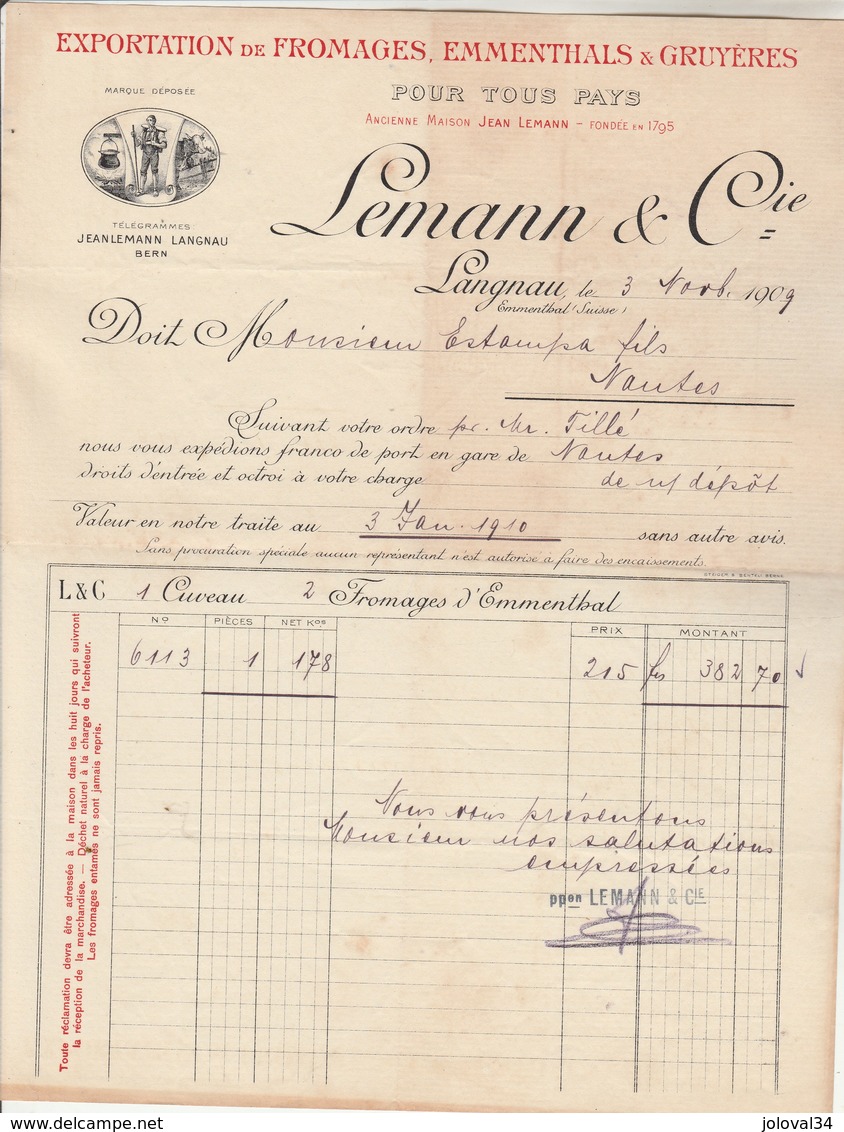 EXPORTATION DE FROMAGES, EMMENTHALS & GRUYÈRES
POUR TOUS PAYS
ANCIENNE MAISON JEAN LEMANN – FONDÉE EN 1795
MARQUE DÉPOSÉE
TÉLÉGRAMMES
JEANLEMANN LANGNAU
BERN
Lemann & Cie
Langnau, le 3 Novb. 1909
Emmenthal (Suisse)
Doit Monsieur Estampa fils
Nantes
Suivant votre ordre pr. Mr. Tillé
nous vous expédions franco de port en gare de Nantes
droits d'entrée et octroi à votre charge de n/ dépôt
Valeur en notre traite au 3 Jan. 1910 sans autre avis.
Sans procuration spéciale aucun représentant n'est autorisé à faire des encaissements.
L & C 1 Cuveau 2 Fromages d'Emmenthal
No PIÈCES NET Kos PRIX MONTANT
6113 1 178 215 frs 382 70
Nous vous présentons
Monsieur nos salutations
empressées
ppon LEMANN & CIE
Toute réclamation devra être adressée à la maison dans les huit jours qui suivront
la réception de la marchandise. — Déchet naturel à la charge de l'acheteur.
Les fromages entamés ne sont jamais repris.
joloval34